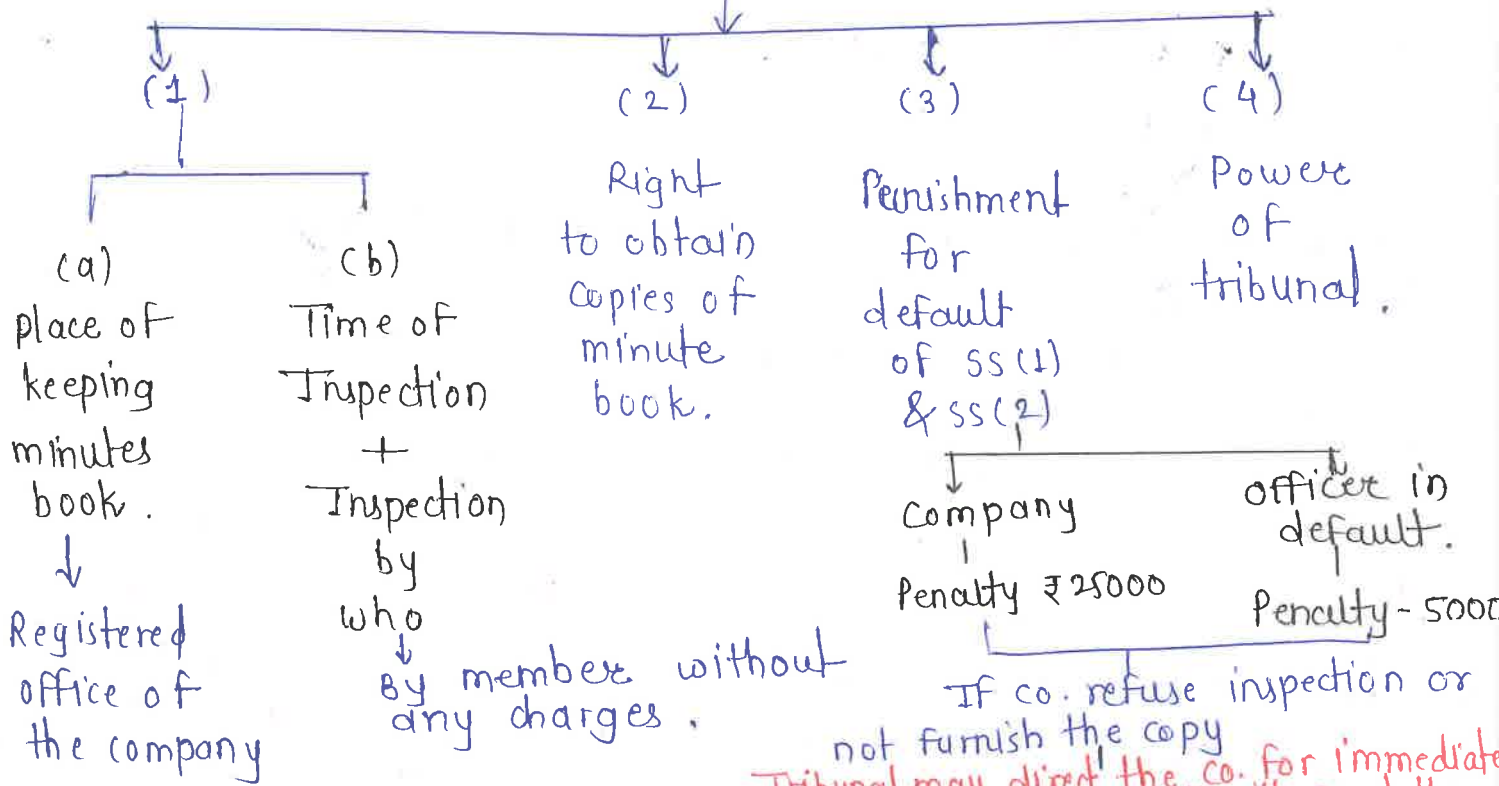 (1)
(2)
(3)
(4)
(a)
place of
keeping
minutes
book.
Registered
office of
the company
(b)
Time of
Inspection
+
Inspection
by
who
By member without
any charges.
Right
to obtain
Copies of
minute
book.
Punishment
for
default
of SS(1)
& SS(2)
Company
Penalty ₹25000
officer in
default.
Penalty - 5000
If co. refuse inspection or
not furnish the copy
Power
of
tribunal.
Tribunal may direct the co. for immediate